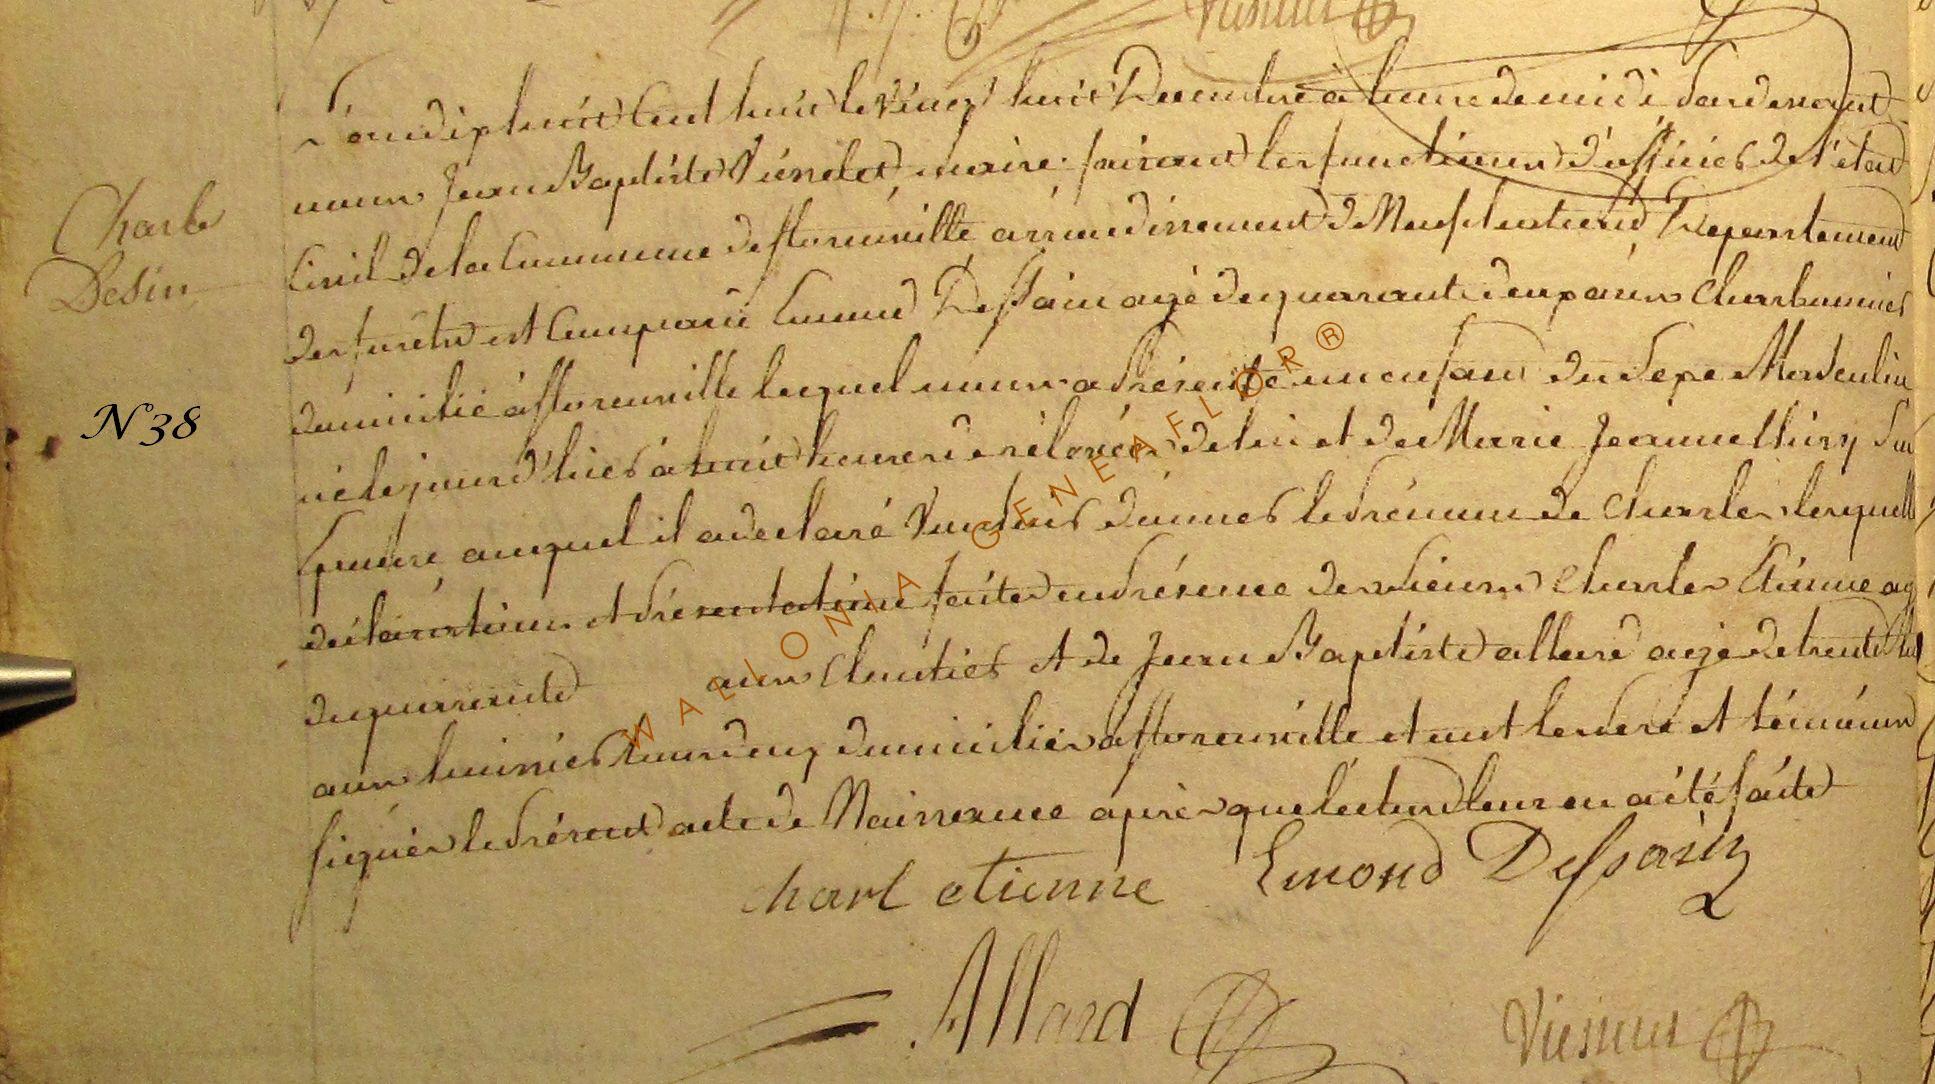 Viesmes
L'an dixhuit Cent huit le Vingt huit Decembre à heure de midi Pardevant
nous Jean Baptiste maire faisant les fonctions d'officier de l'état
Civil de la Commune de florenville arrondissement de Neufchateau, Departement
des forêts est Comparu Emond Dessain agé de quarante deux ans Charbonnier
domicilié à florenville lequel nous a Présenté un enfant du Sexe Masculin
né le jour d'hier à huit heures de relevée de lui et de Marie Jeanne Son
Epouse auquel il a declaré Vouloir donner le Prénom de Charles lesquelles
déclarations et Présentations faites en Présence des Sieurs Charles Etienne agé
de quarante ans Cloutier et de Jean Baptiste allard agé de trente
ans tous deux domiciliés à florenville et ont les Pere et témoins
signés le Présent acte de Naissance après que lecture leur en a été faite
Charles
Desin
N 38
charl etienne Emond Dessain
Allard Viesmes
WALLONIA GENEAFLOR ®